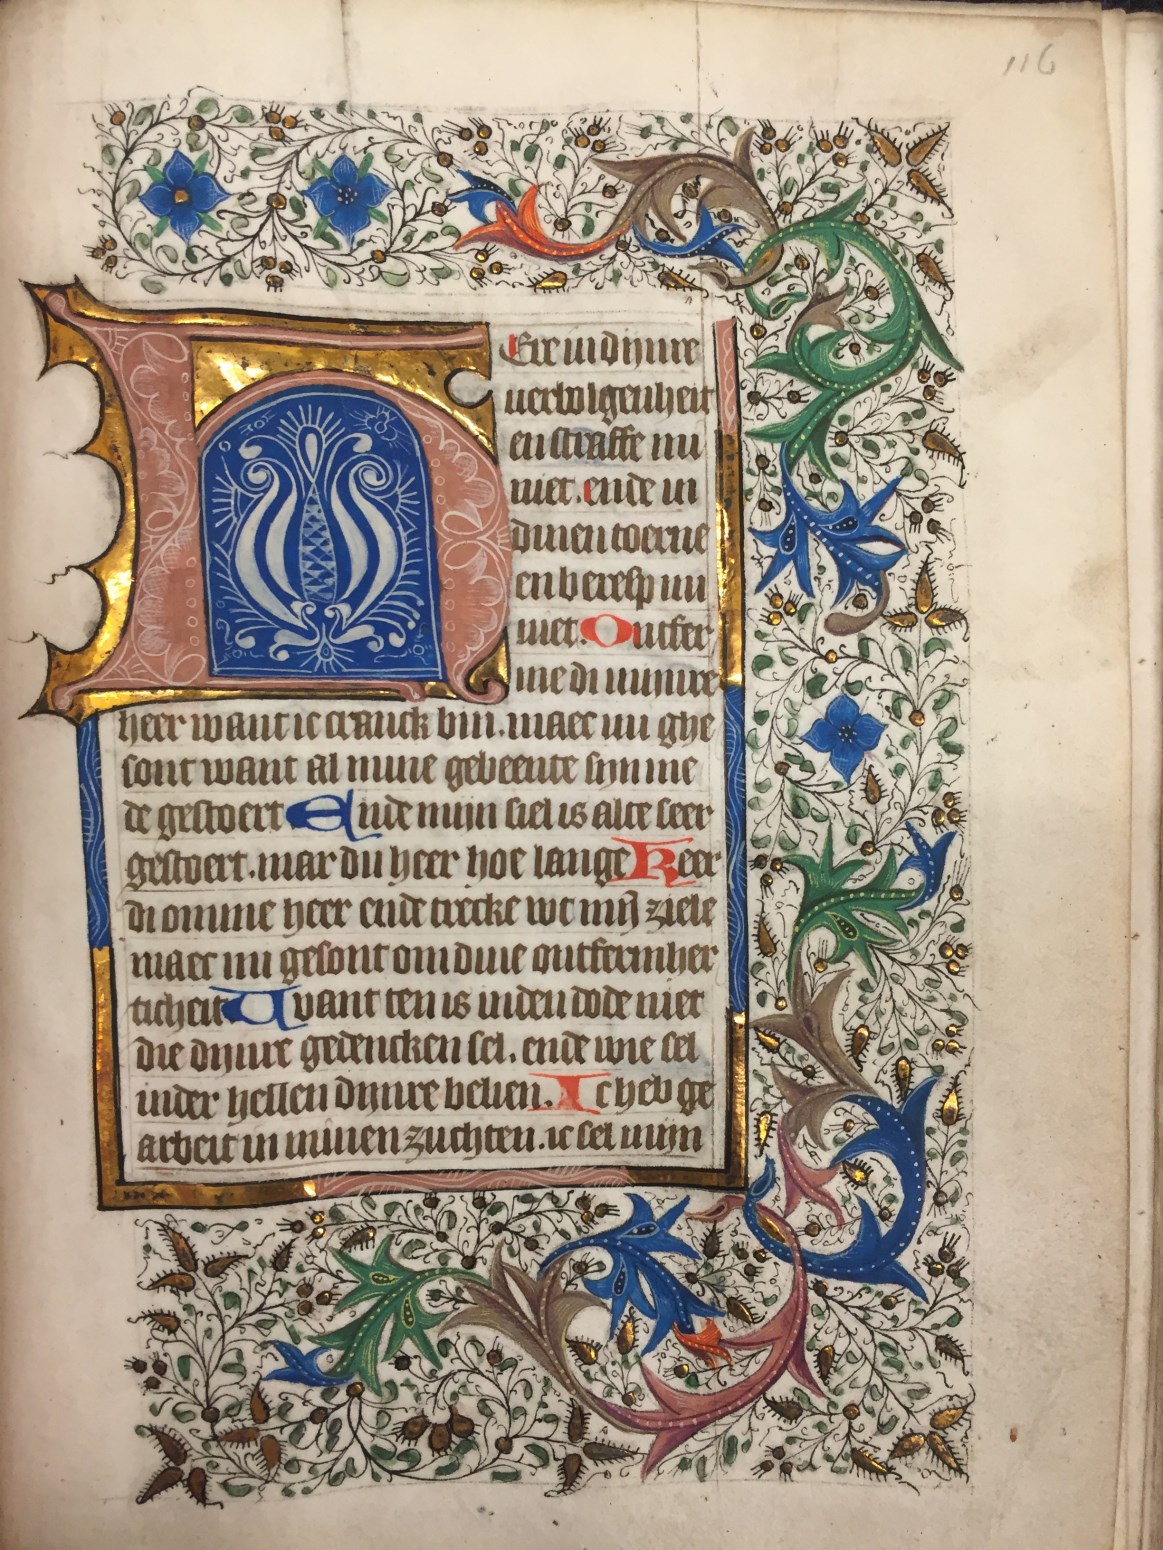 116
HEre in dijnre
verbolgenheit
en straffe mi
niet. ende in
dinen toerne
en beresp mi
niet. Ontfer
me di mijnre
heer want ic cranck bin. maec mi ghe
sont want al mine gebeente sijn me
de gestoert Ende mijn siel is alte seer
gestoert. mar du heer hoe lange Keer
di omme heer ende trecke wt mij̄ ziele
maec mi gesont om dine ontfermher
ticheit Want ten is inden dode niet
die dijnre gedencken sel. ende wie sel
inder hellen dijnre belien. Ic heb ge
arbeit in minen zuchten. ic sel mijn